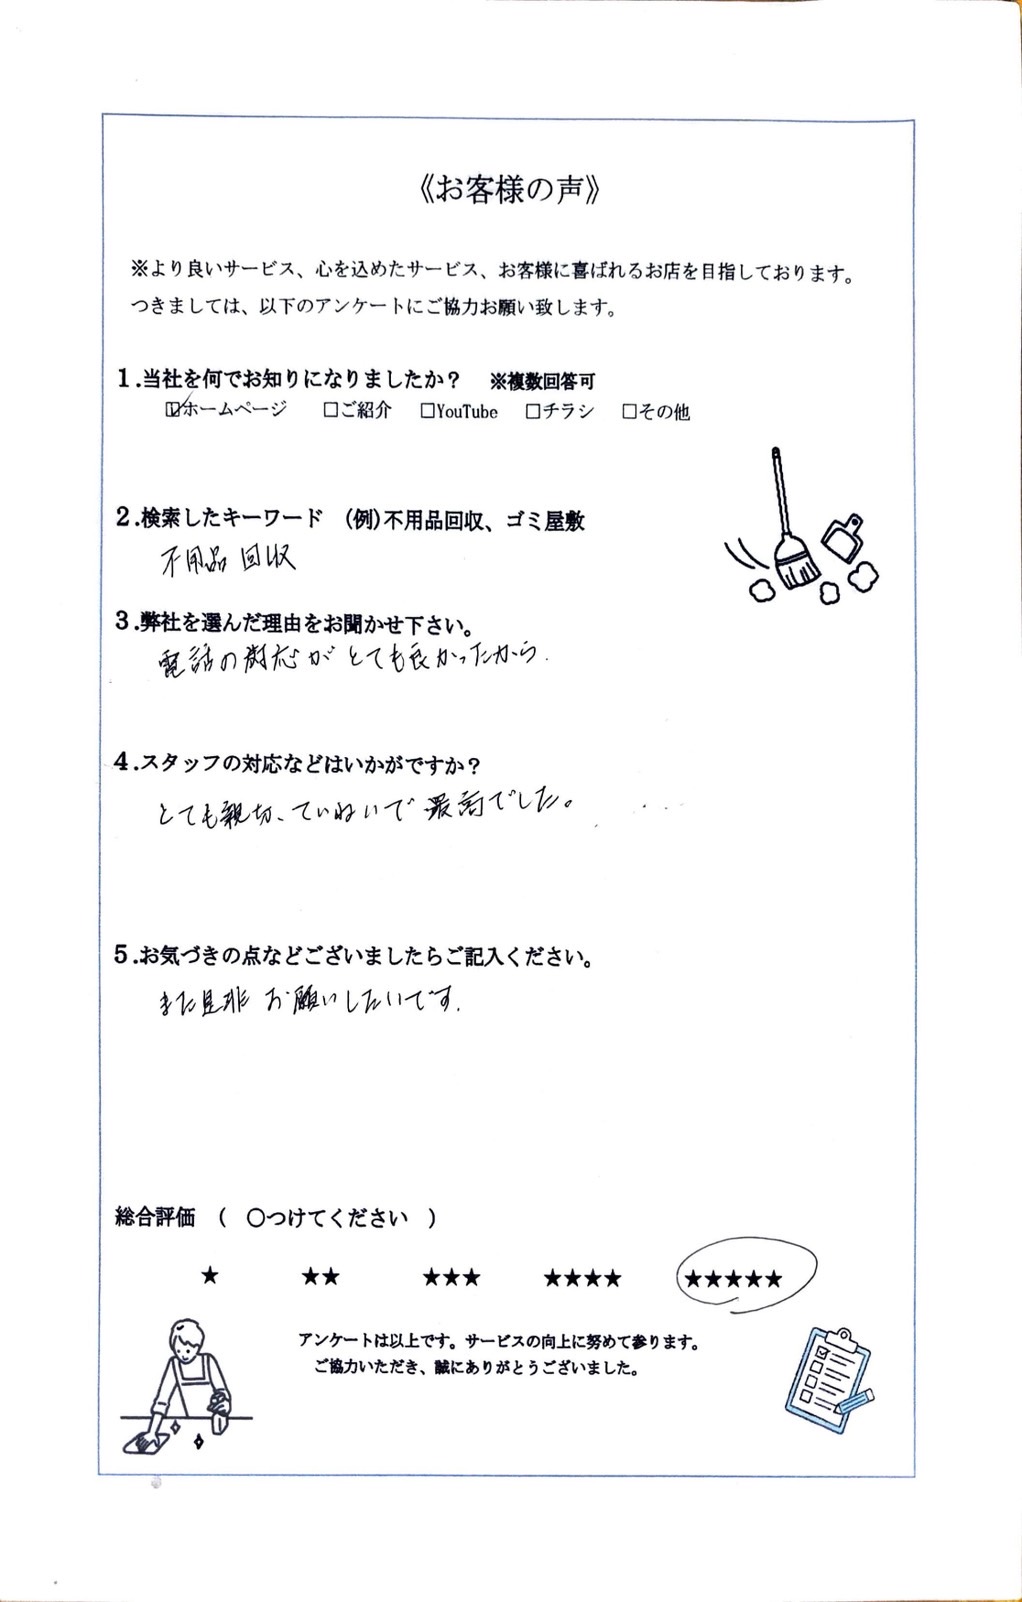 《お客様の声》
※より良いサービス、心を込めたサービス、お客様に喜ばれるお店を目指しております。
つきましては、以下のアンケートにご協力お願い致します。
1.当社を何でお知りになりましたか？　※複数回答可
☑ホームページ　□ご紹介　□YouTube　□チラシ　□その他
2.検索したキーワード　(例)不用品回収、ゴミ屋敷
不用品 回収
3.弊社を選んだ理由をお聞かせ下さい。
電話の対応がとても良かったから.
4.スタッフの対応などはいかがですか？
とても親切、ていねいで最高でした。
5.お気づきの点などございましたらご記入ください。
また是非 お願いしたいです.
総合評価　(　○つけてください　)
★　★★　★★★　★★★★　★★★★★
アンケートは以上です。サービスの向上に努めて参ります。
ご協力いただき、誠にありがとうございました。